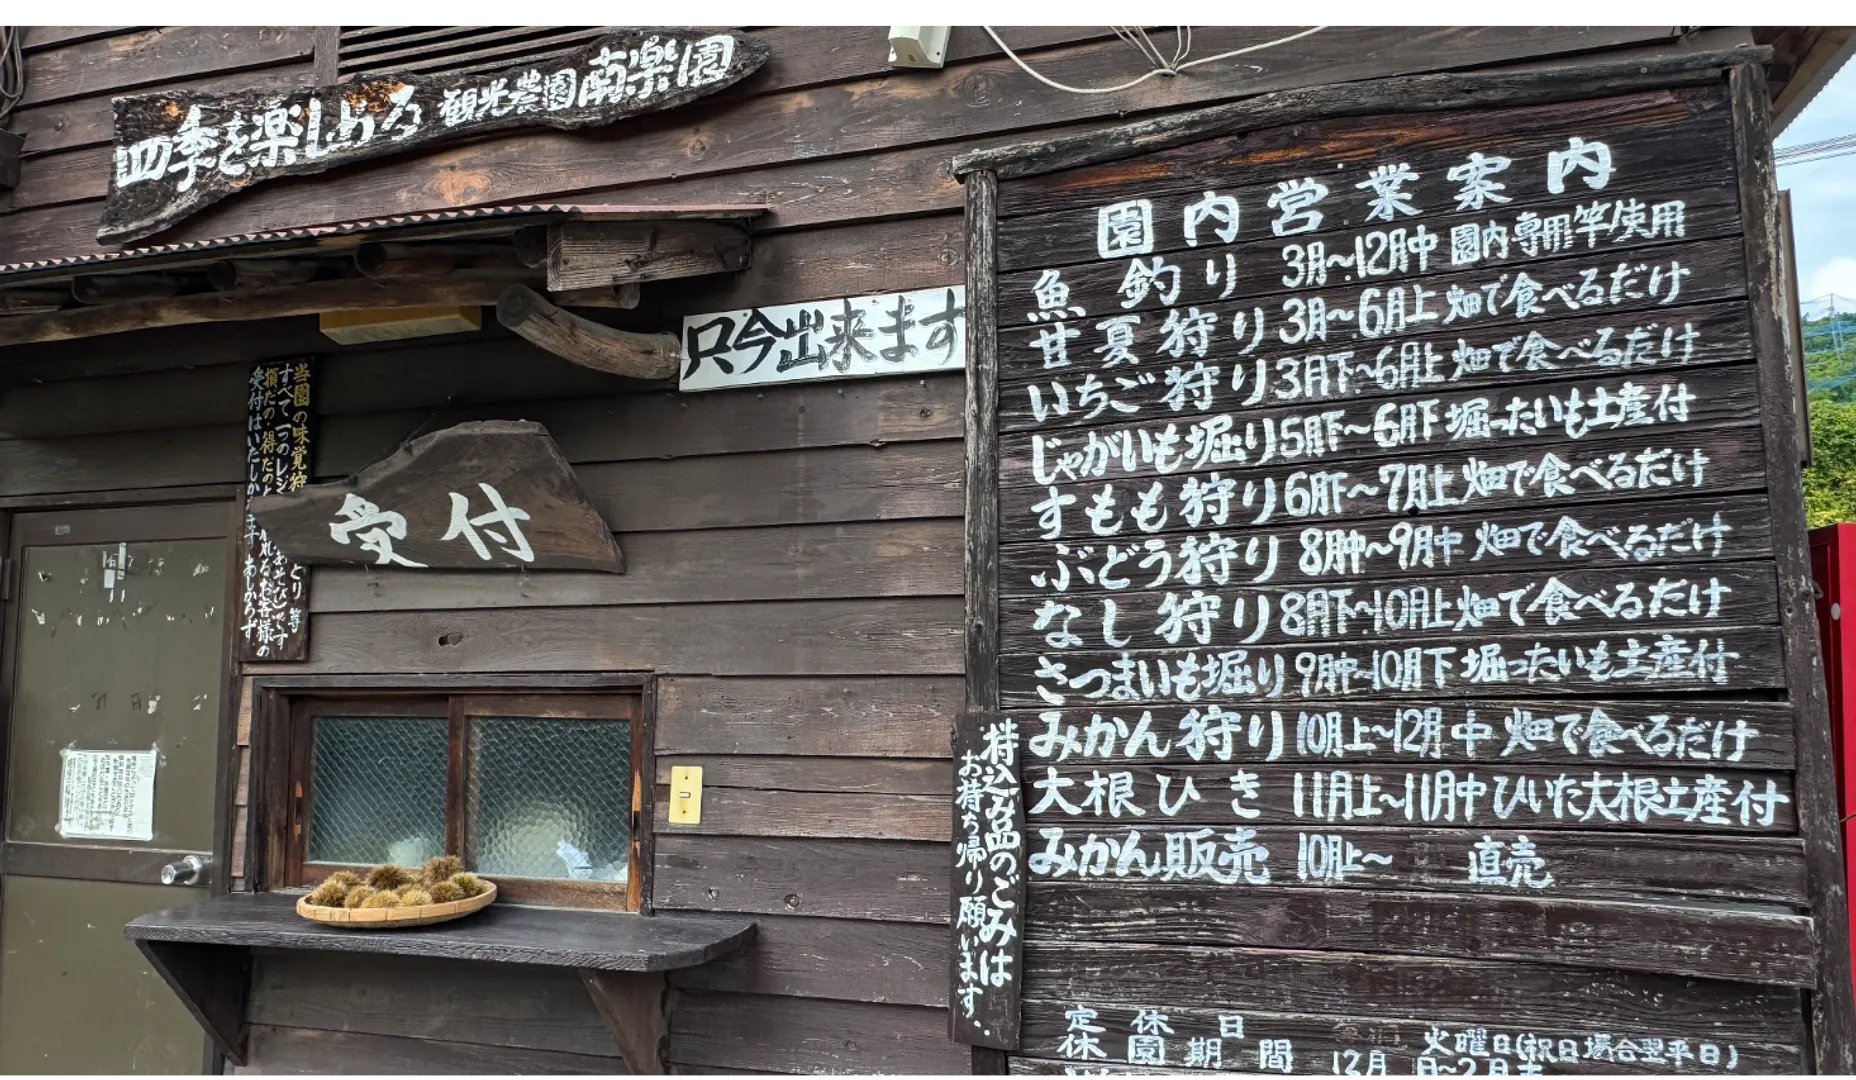 四季を楽しめる 観光農園 南楽園
只今出来ます
受付
当園の味覚狩
とり等
すべて一つのレジ
あそび)です
損だの・得だの
れるお客様の
受付はいたしか
ます あしからず
園内営業案内
魚釣り 3月~12月中 園内専用竿使用
甘夏狩り 3月~6月上 畑で食べるだけ
いちご狩り 3月下~6月上 畑で食べるだけ
じゃがいも堀り 5月下~6月下 堀ったいも土産付
すもも狩り 6月下~7月上 畑で食べるだけ
ぶどう狩り 8月中~9月中 畑で食べるだけ
なし狩り 8月下~10月上 畑で食べるだけ
さつまいも堀り 9月中~10月下 堀ったいも土産付
みかん狩り 10月上~12月中 畑で食べるだけ
大根ひき 11月上~11月中 ひいた大根土産付
みかん販売 10月上~ 直売
持込み品のごみは
お持ち帰り願います。
定休日 火曜日(祝日場合翌平日)
休園期間 12月 日~2月末